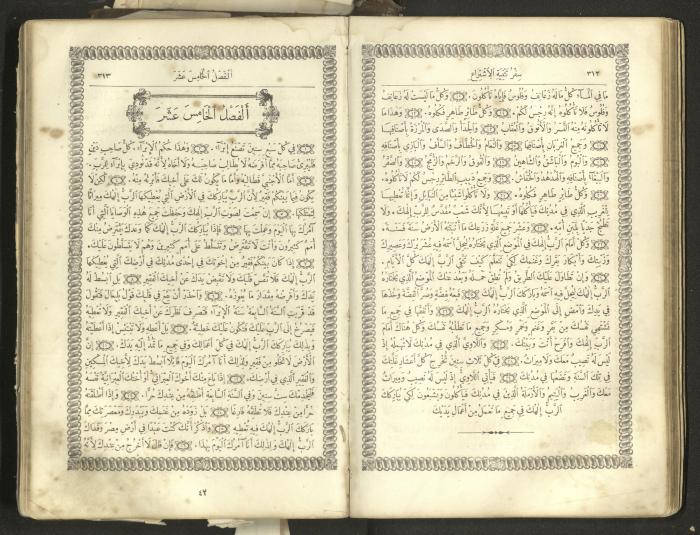 ٣١٢ سِفْرُ تَثْنِيَةِ الِاشْتِرَاعِ
مَا فِي الْمَاءِ كُلُّ مَا لَهُ زَعَانِفُ وَفُلُوسٌ فَإِيَّاهُ تَأْكُلُونَ. وَكُلُّ مَا لَيْسَتْ لَهُ زَعَانِفُ
وَفُلُوسٌ فَلَا تَأْكُلُوهُ إِنَّهُ رِجْسٌ لَكُمْ. وَكُلَّ طَائِرٍ طَاهِرٍ فَكُلُوهُ. وَهٰذَا مَا
لَا تَأْكُلُونَهُ مِنْهُ النَّسْرُ وَالْأَنُوقُ وَالْعُقَابُ وَالْحِدَأُ وَالصَّدَى وَالزُّرَّقُ بِأَصْنَافِهَا
وَجَمِيعُ الْغِرْبَانِ بِأَصْنَافِهَا وَالنَّعَامُ وَالْخُطَّافُ وَالسَّأَفُ وَالْبَازِي بِأَصْنَافِهِ
وَالْبُومُ وَالْبَاشَقُ وَالشَّاهِينُ وَالْقُوقُ وَالرَّخَمُ وَالزُّمَّجُ وَاللَّقْلَقُ
وَالْبَبَّغَاءُ بِأَصْنَافِهِ وَالْهُدْهُدُ وَالْخُفَّاشُ. وَجَمِيعُ دَبِيبِ الطَّائِرِ رِجْسٌ لَكُمْ لَا تَأْكُلُوهُ.
وَكُلَّ طَائِرٍ طَاهِرٍ فَكُلُوهُ. وَلَا تَأْكُلُوا شَيْئًا مِنَ النَّبَائِلِ وَإِنَّمَا تُعْطِيهَا
لِلْغَرِيبِ الَّذِي فِي مُدُنِكَ فَيَأْكُلُهَا أَوْ تَبِيعُهَا لِأَنَّكَ شَعْبٌ مُقَدَّسٌ لِلرَّبِّ إِلٰهِكَ. وَلَا
تَطْبُخْ جَدْيًا بِلَبَنِ أُمِّهِ. وَعَشِّرْ جَمِيعَ غَلَّةِ زَرْعِكَ مَا أَنْبَتَتْهُ الْأَرْضُ سَنَةً فَسَنَةً.
وَكُلْ أَمَامَ الرَّبِّ إِلٰهِكَ فِي الْمَوْضِعِ الَّذِي يَخْتَارُهُ لِيُحِلَّ اسْمَهُ فِيهِ عُشْرَ بُرِّكَ وَعَصِيرِكَ
وَزَيْتِكَ وَأَبْكَارَ بَقَرِكَ وَغَنَمِكَ لِكَيْ تَتَعَلَّمَ كَيْفَ تَتَّقِي الرَّبَّ إِلٰهَكَ كُلَّ الْأَيَّامِ.
وَإِنْ تَطَاوَلَ عَلَيْكَ الطَّرِيقُ وَلَمْ تُطِقْ حَمْلَهُ وَبَعُدَ عَنْكَ الْمَوْضِعُ الَّذِي يَخْتَارُهُ
الرَّبُّ إِلٰهُكَ لِيُحِلَّ فِيهِ اسْمَهُ وَبَارَكَكَ الرَّبُّ إِلٰهُكَ فَبِعْهُ بِفِضَّةٍ وَصُرَّ الْفِضَّةَ وَخُذْهَا
فِي يَدِكَ وَامْضِ إِلَى الْمَوْضِعِ الَّذِي يَخْتَارُهُ الرَّبُّ إِلٰهُكَ وَأَنْفِقْهَا فِي جَمِيعِ مَا
تَشْتَهِي نَفْسُكَ مِنْ بَقَرٍ وَغَنَمٍ وَخَمْرٍ وَمُسْكِرٍ وَجَمِيعِ مَا تَطْلُبُهُ نَفْسُكَ وَكُلْ هُنَاكَ أَمَامَ
الرَّبِّ إِلٰهِكَ وَافْرَحْ أَنْتَ وَبَيْتُكَ. وَاللَّاوِيُّ الَّذِي فِي مُدُنِكَ لَا تُهْمِلْهُ إِذْ
لَيْسَ لَهُ نَصِيبٌ مَعَكَ وَلَا مِيرَاثٌ. فِي كُلِّ ثَلَاثِ سِنِينَ تُخْرِجُ كُلَّ أَعْشَارِ غَلَّتِكَ
فِي تِلْكَ السَّنَةِ وَتَضَعُهَا فِي مُدُنِكَ فَيَأْتِي اللَّاوِيُّ إِذْ لَيْسَ لَهُ نَصِيبٌ وَمِيرَاثٌ
مَعَكَ وَالْغَرِيبُ وَالْيَتِيمُ وَالْأَرْمَلَةُ الَّذِينَ فِي مُدُنِكَ فَيَأْكُلُونَ وَيَشْبَعُونَ لِكَيْ يُبَارِكَكَ
الرَّبُّ إِلٰهُكَ فِي جَمِيعِ مَا تَعْمَلُ مِنْ أَعْمَالِ يَدَيْكَ
الْفَصْلُ الْخَامِسَ عَشَرَ ٣١٣
أَلْفَصْلُ الْخَامِسَ عَشَرَ
فِي كُلِّ سَبْعِ سِنِينَ تَصْنَعُ إِبْرَاءً. وَهٰذَا حُكْمُ الْإِبْرَاءِ. كُلُّ صَاحِبِ دَيْنٍ
فَلْيُبْرِئْ صَاحِبَهُ مِمَّا أَقْرَضَهُ لَا يُطَالِبْ صَاحِبَهُ وَلَا أَخَاهُ لِأَنَّهُ قَدْ نُودِيَ بِإِبْرَاءٍ لِلرَّبِّ.
أَمَّا الْأَجْنَبِيُّ فَطَالِبْهُ وَأَمَّا مَا يَكُونُ لَكَ عَلَى أَخِيكَ فَأَبْرِئْهُ مِنْهُ. لٰكِنْ لَا
يَكُونُ فِيمَا بَيْنَكُمْ فَقِيرٌ لِأَنَّ الرَّبَّ يُبَارِكُكَ فِي الْأَرْضِ الَّتِي يُعْطِيكَهَا الرَّبُّ إِلٰهُكَ مِيرَاثًا
لِتَمْتَلِكَهَا. إِنْ سَمِعْتَ لِصَوْتِ الرَّبِّ إِلٰهِكَ وَحَفِظْتَ جَمِيعَ هٰذِهِ الْوَصَايَا الَّتِي أَنَا
آمُرُكَ بِهَا الْيَوْمَ وَعَمِلْتَ بِهَا فَإِذَا بَارَكَكَ الرَّبُّ إِلٰهُكَ كَمَا وَعَدَكَ يَقْتَرِضُ مِنْكَ
أُمَمٌ كَثِيرُونَ وَأَنْتَ لَا تَقْتَرِضُ وَتَتَسَلَّطُ عَلَى أُمَمٍ كَثِيرِينَ وَهُمْ لَا يَتَسَلَّطُونَ عَلَيْكَ.
إِذَا كَانَ بَيْنَكُمْ فَقِيرٌ مِنْ إِخْوَتِكَ فِي إِحْدَى مُدُنِكَ فِي أَرْضِكَ الَّتِي يُعْطِيكَهَا
الرَّبُّ إِلٰهُكَ فَلَا تُقَسِّ قَلْبَكَ وَلَا تَقْبِضْ يَدَكَ عَنْ أَخِيكَ الْفَقِيرِ بَلِ ابْسُطْ لَهُ
يَدَكَ وَأَقْرِضْهُ مِقْدَارَ مَا يُعْوِزُهُ. وَاحْذَرْ أَنْ يَهْجِسَ فِي قَلْبِكَ قَوْلُ بِلِيعَالَ فَتَقُولَ
قَدْ قَرُبَتِ السَّنَةُ السَّابِعَةُ سَنَةُ الْإِبْرَاءِ فَتَصْرِفَ نَظَرَكَ عَنْ أَخِيكَ الْفَقِيرِ وَلَا تُعْطِيَهُ
فَيَصْرُخَ إِلَى الرَّبِّ عَلَيْكَ فَتَكُونَ عَلَيْكَ خَطِيئَةٌ. بَلْ أَعْطِهِ وَلَا تَبْتَئِسْ إِذَا أَعْطَيْتَهُ
وَبِذٰلِكَ يُبَارِكُكَ الرَّبُّ إِلٰهُكَ فِي كُلِّ أَعْمَالِكَ وَفِي جَمِيعِ مَا تَمُدُّ إِلَيْهِ يَدَكَ. إِنَّ
الْأَرْضَ لَا تَخْلُو مِنْ فَقِيرٍ وَلِذٰلِكَ أَنَا آمُرُكَ الْيَوْمَ قَائِلًا ابْسُطْ يَدَكَ لِأَخِيكَ الْمِسْكِينِ
وَالْفَقِيرِ الَّذِي فِي أَرْضِكَ. إِذَا بَاعَ مِنْكَ أَخُوكَ الْعِبْرَانِيُّ أَوْ أُخْتُكَ الْعِبْرَانِيَّةُ نَفْسَهُ
فَلْيَخْدُمْكَ سِتَّ سِنِينَ وَفِي السَّنَةِ السَّابِعَةِ أَطْلِقْهُ مِنْ عِنْدِكَ حُرًّا وَإِذَا أَطْلَقْتَهُ
حُرًّا مِنْ عِنْدِكَ فَلَا تُطْلِقْهُ فَارِغًا بَلْ زَوِّدْهُ مِنْ غَنَمِكَ وَبَيْدَرِكَ وَمَعْصَرَتِكَ مِمَّا
بَارَكَكَ الرَّبُّ إِلٰهُكَ فِيهِ تُعْطِيهِ وَاذْكُرْ أَنَّكَ كُنْتَ عَبْدًا فِي أَرْضِ مِصْرَ وَفَدَاكَ
الرَّبُّ إِلٰهُكَ وَلِذٰلِكَ أَنَا آمُرُكَ الْيَوْمَ بِهٰذَا. فَإِنْ قَالَ لَا أَخْرُجُ مِنْ عِنْدِكَ لِأَنَّهُ
٤٢